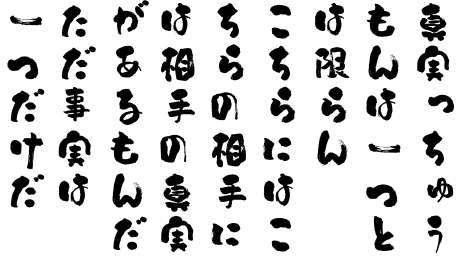 真実っちゅう
もんは一つと
は限らん
こちらにはこ
ちらの相手に
は相手の真実
があるもんだ
ただ事実は
一つだけだ